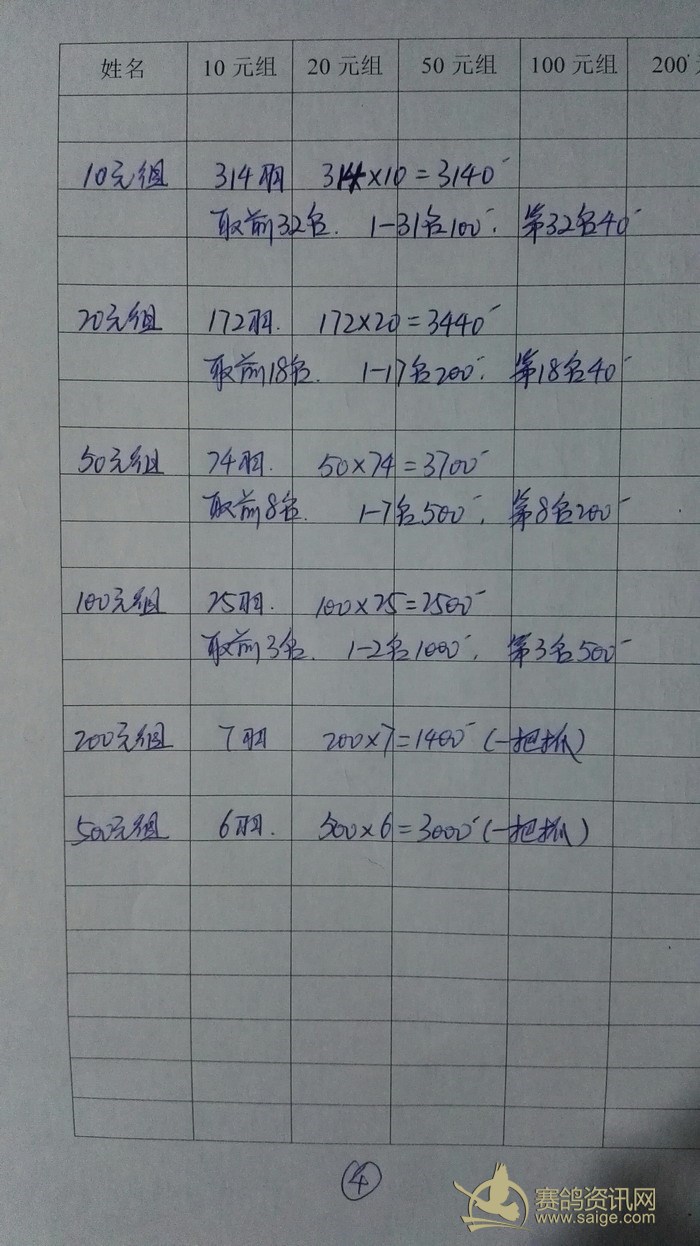 姓名 10元组 20元组 50元组 100元组 200
10元组 314羽 314×10=3140
取前32名. 1-31名100. 第32名40
20元组 172羽. 172×20=3440
取前18名. 1-17名200. 第18名40
50元组 74羽. 50×74=3700
取前8名. 1-7名500. 第8名200
100元组 25羽. 100×25=2500
取前3名. 1-2名1000. 第3名500
200元组 7羽 200×7=1400(一把抓)
500元组 6羽. 500×6=3000(一把抓)
④
赛鸽资讯网
www.saige.com